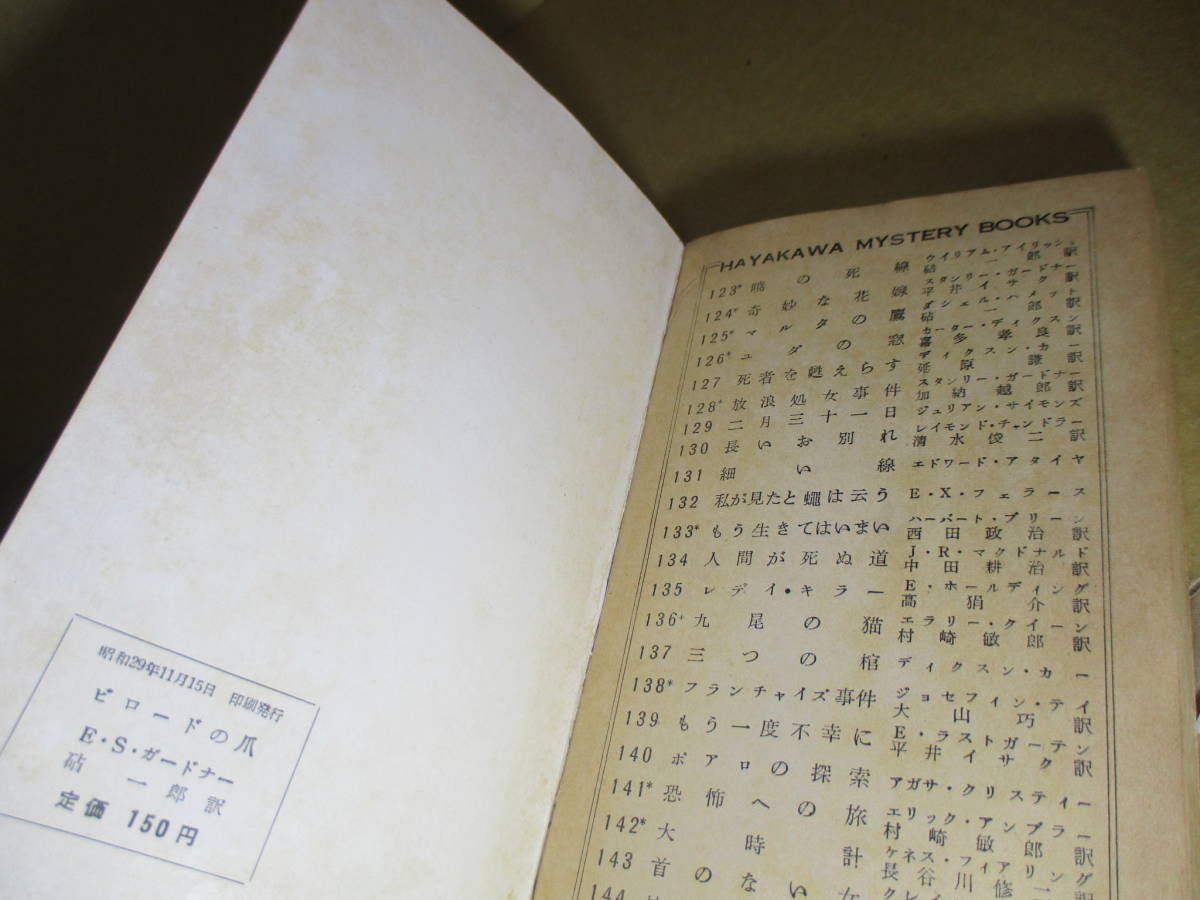 昭和29年11月15日 印刷発行
ビロードの爪
E・S・ガードナー
砧一郎訳
定価 150円
HAYAKAWA MYSTERY BOOKS
123* 暁の死線 ウイリアム・アイリッシュ 砧一郎訳
124* 奇妙な花嫁 スタンリー・ガードナー 平井イサク訳
125* マルタの鷹 ダシェル・ハメット 砧一郎訳
126* ユダの窓 カーター・ディクスン 喜多孝良訳
127 死者を甦えらす ディクスン・カー 延原謙訳
128* 放浪処女事件 スタンリー・ガードナー 加納越郎訳
129 二月三十一日 ジュリアン・サイモンズ
130 長いお別れ レイモンド・チャンドラー 清水俊二訳
131 細い線 エドワード・アタイヤ
132 私が見たと蠅は云う E・X・フェラース
133* もう生きてはいまい ハーバート・ブリーン 西田政治訳
134 人間が死ぬ道 J・R・マクドナルド 中田耕治訳
135 レデイ・キラー E・ホールディング 高狷介訳
136* 九尾の猫 エラリー・クイーン 村崎敏郎訳
137 三つの棺 ディクスン・カー
138* フランチャイズ事件 ジョセフィン・テイ 大山巧訳
139 もう一度不幸に E・ラストガーテン 平井イサク訳
140 ポアロの探索 アガサ・クリスティー
141* 恐怖への旅 エリック・アンブラー 村崎敏郎訳
142* 大時計 ケネス・フィアリング 長谷川修一訳
143 首のない女 クレイ
144